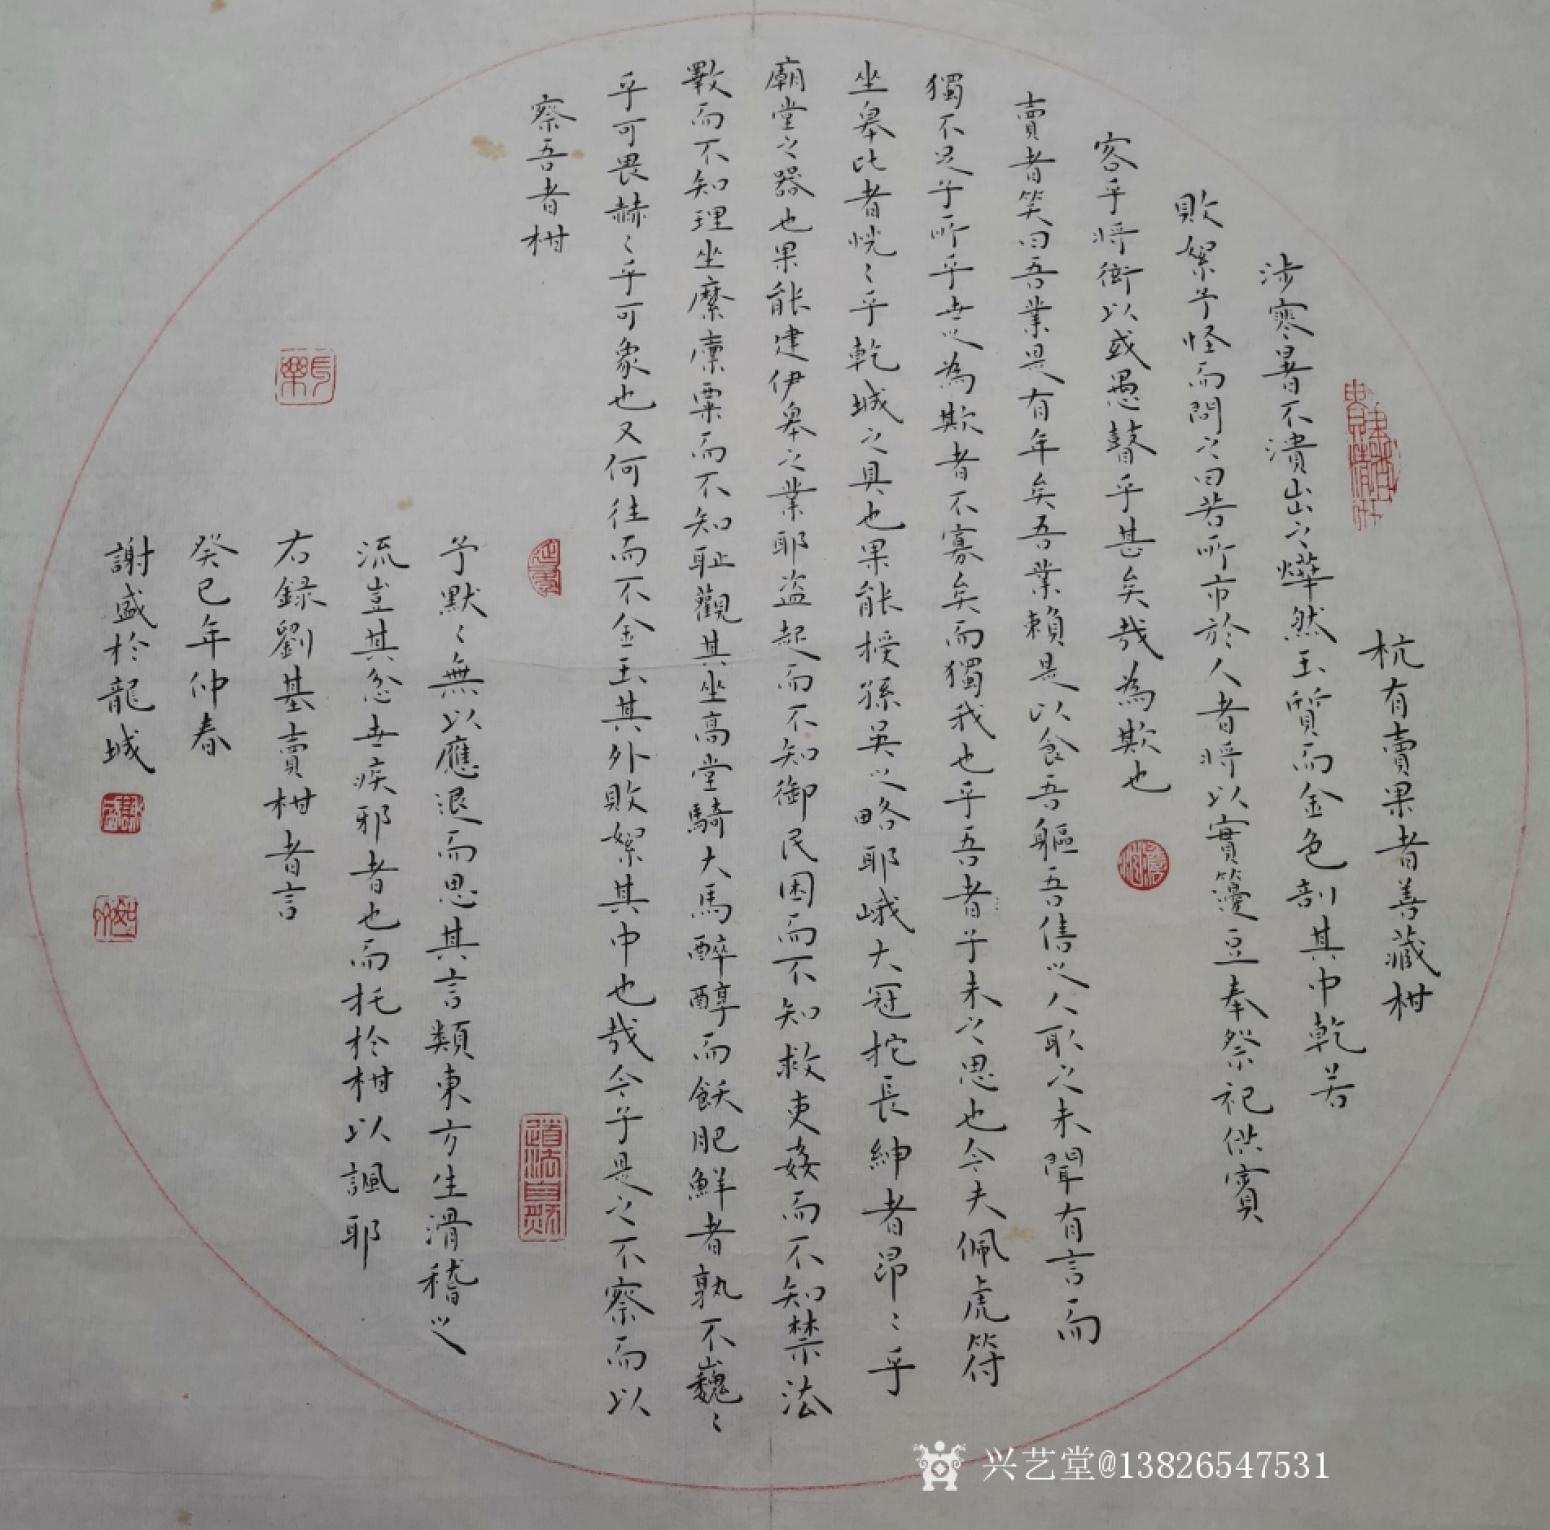 杭有賣果者善藏柑
涉寒暑不潰出之燁然玉質而金色剖其中乾若
敗絮予怪而問之曰若所市於人者將以實籩豆奉祭祀供賓
客乎將衒以或愚瞽乎甚矣哉為欺也
賣者笑曰吾業是有年矣吾業賴是以食吾軀吾售之人取之未聞有言而
獨不足子所乎世之為欺者不寡矣而獨我也乎吾者子未之思也今夫佩虎符
坐皋比者恍〻乎乾城之具也果能授孫吳之略耶峨大冠拖長紳者昂〻乎
廟堂之器也果能建伊皋之業耶盜起而不知御民困而不知救吏姦而不知禁法
斁而不知理坐縻廩粟而不知恥觀其坐高堂騎大馬醉醇而飫肥鮮者孰不巍〻
乎可畏赫〻乎可象也又何往而不金玉其外敗絮其中也哉今子是之不察而以
察吾者柑
予默〻無以應退而思其言類東方生滑稽之
流豈其忿世疾邪者也而托於柑以諷耶
右錄劉基賣柑者言
癸巳年仲春
謝盛於龍城
長樂
道法自然
兴艺堂@13826547531